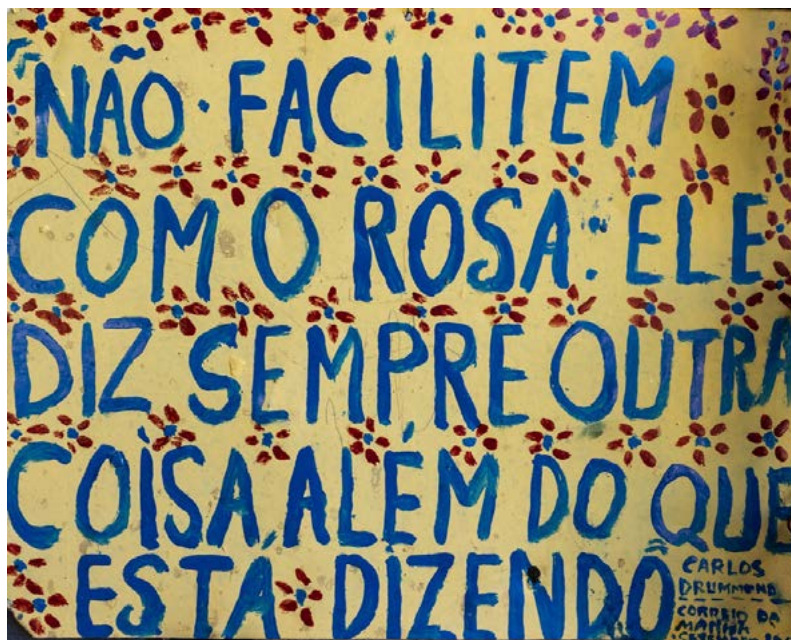 NÃO·FACILITEM
COM O ROSA: ELE
DIZ SEMPRE OUTRA
COISA ALÉM DO QUE
ESTÁ DIZENDO"
CARLOS
DRUMMOND
CORREIO DA
MANHÃ